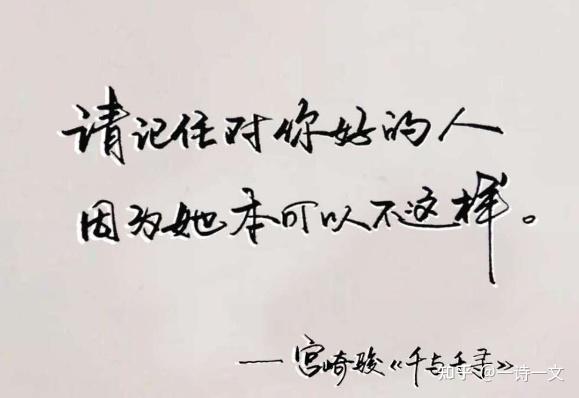 请记住对你好的人
因为她本可以不这样。
——宫崎骏《千与千寻》
知乎 @一诗一文